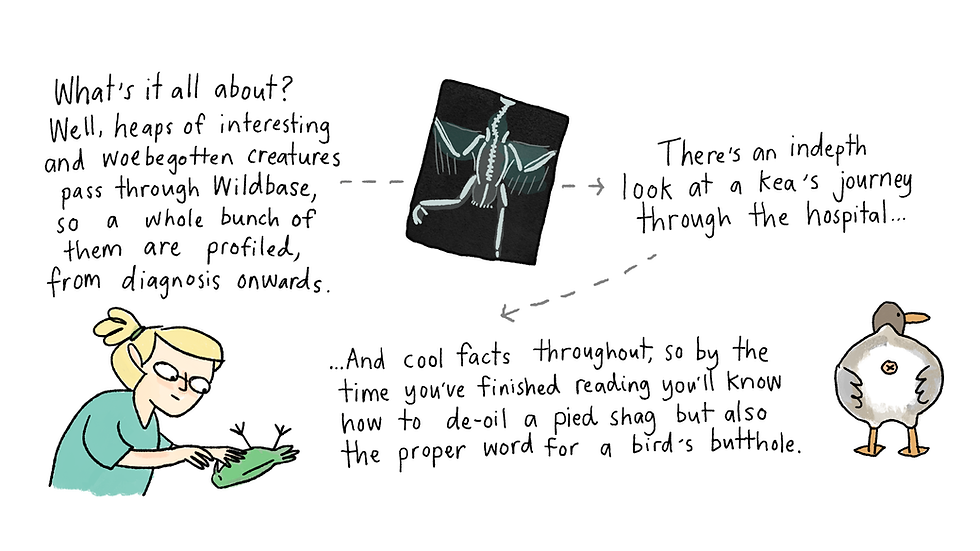 What's it all about?
Well, heaps of interesting
and woebegotten creatures
pass through Wildbase,
so a whole bunch of
them are profiled,
from diagnosis onwards.
There's an indepth
look at a kea's journey
through the hospital...
...And cool facts throughout, so by the
time you've finished reading you'll know
how to de-oil a pied shag but also
the proper word for a bird's butthole.